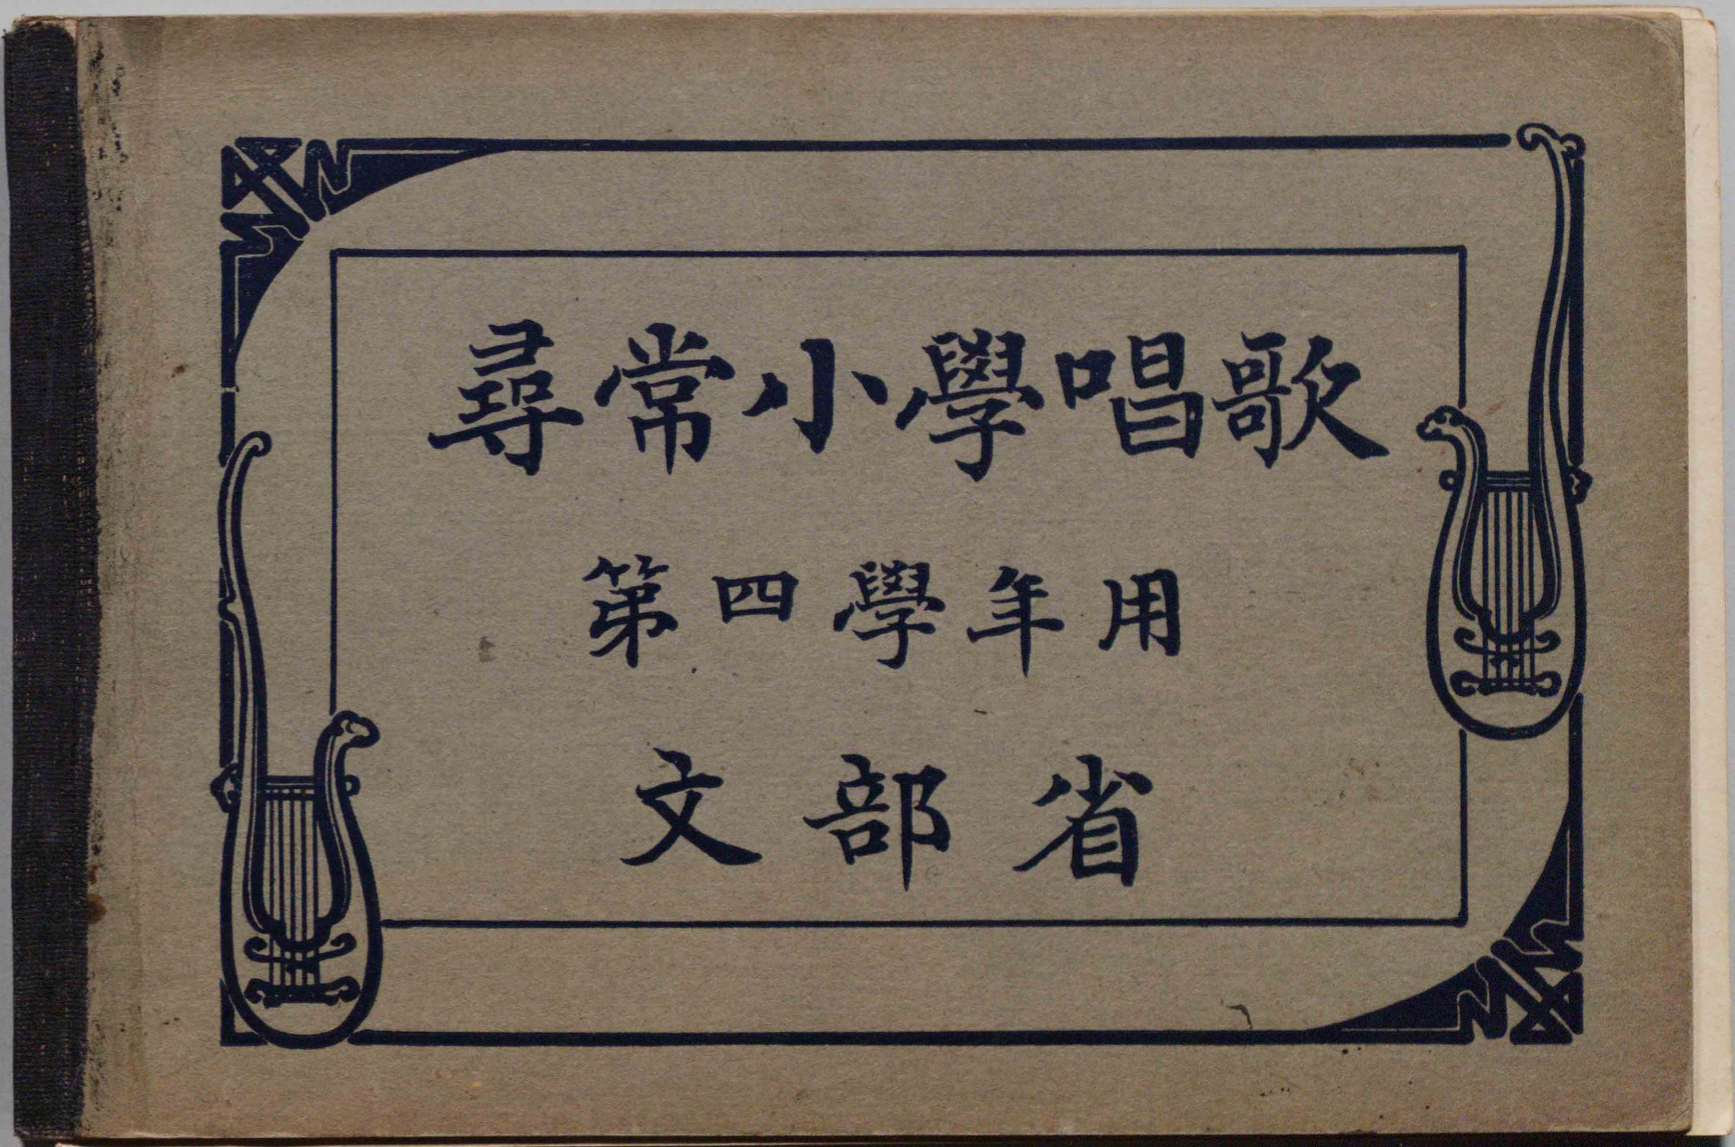 尋常小學唱歌
第四學年用
文部省